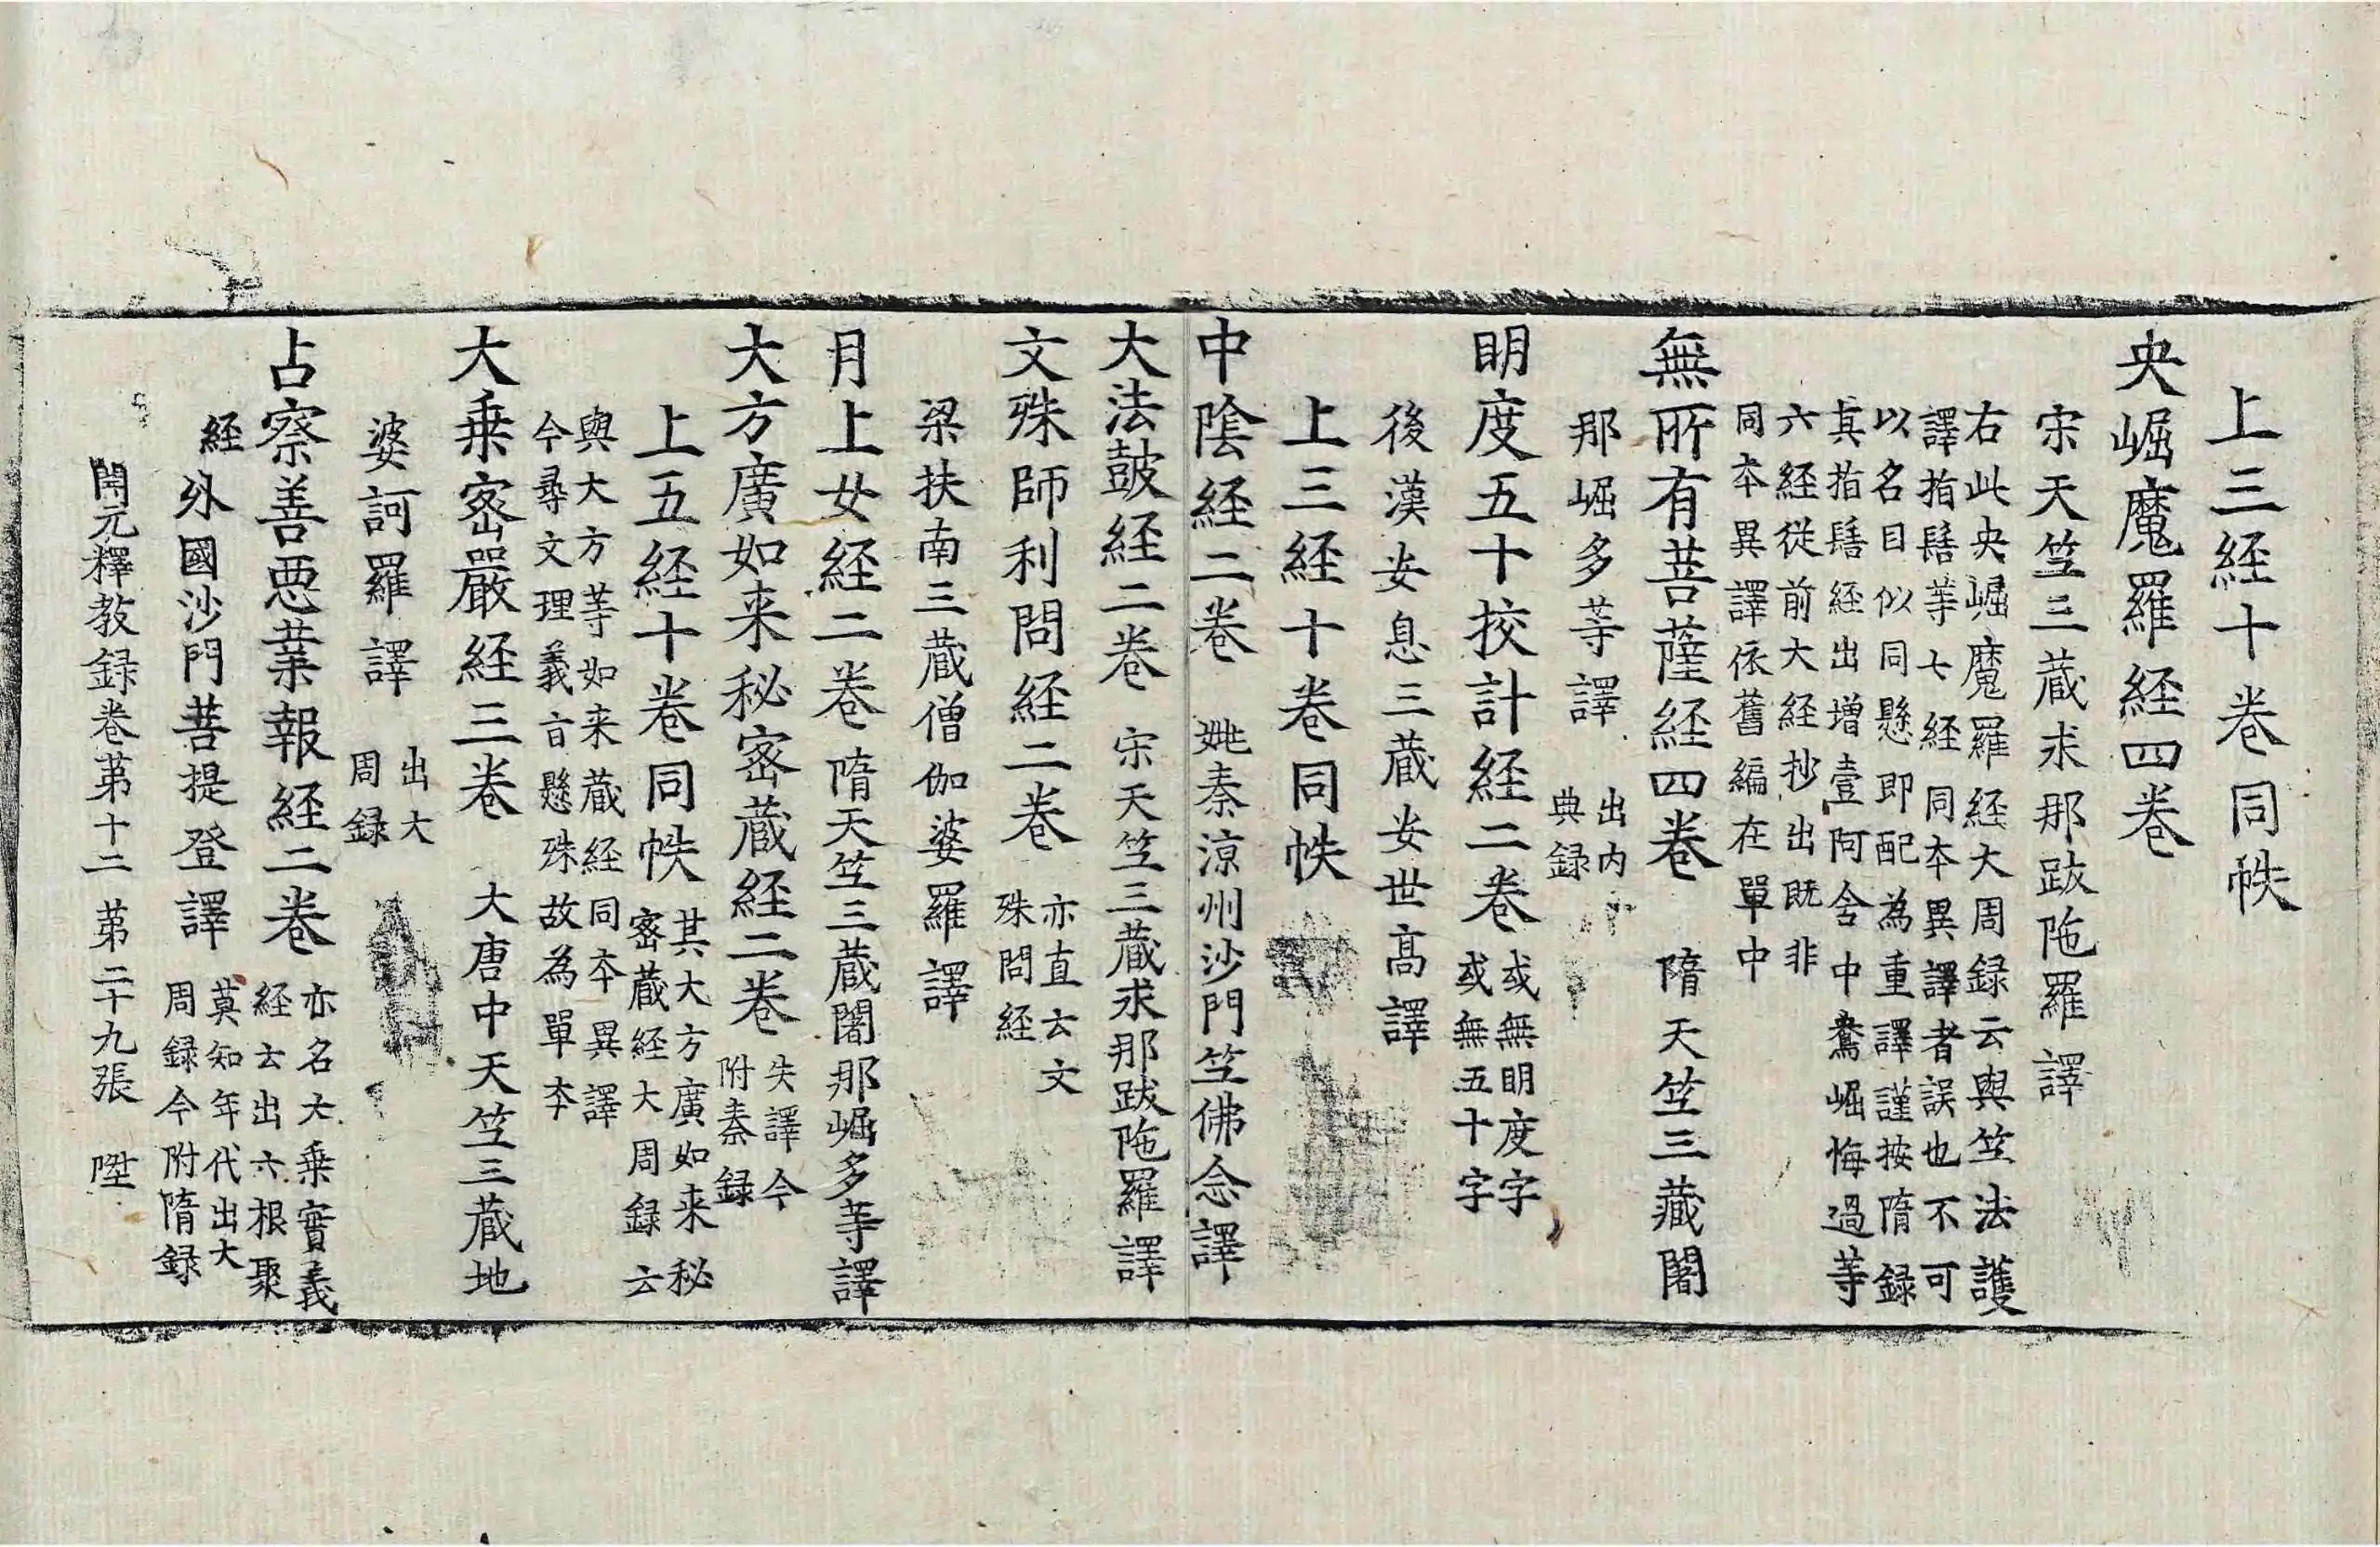 上三経十卷同帙
央崛魔羅経四卷
宋天竺三藏求那跋陁羅譯
右此央崛魔羅経大周録云與竺法護
譯指鬘等七経同夲異譯者誤也不可
以名目似同懸即配為重譯謹按隋録
其指鬘経出增壹阿含中鴦崛悔過等
六経從前大経抄出既非
同夲異譯依舊編在單中
無所有菩薩経四卷 隋天竺三藏闍
那崛多等譯 出内
典録
明度五十挍計経二卷 或無明度字
或無五十字
後漢安息三藏安世髙譯
上三経十卷同帙
中陰経二卷 姚秦涼州沙門竺佛念譯
大法皷経二卷 宋天竺三藏求那跋陁羅譯
文殊師利問経二卷 亦直云文
殊問経
梁扶南三藏僧伽婆羅譯
月上女経二卷 隋天竺三藏闍那崛多等譯
大方廣如来秘密藏経二卷 失譯今
附秦録
上五経十卷同帙 其大方廣如来秘
密藏経大周録云
與大方等如来藏経同夲異譯
今尋文理義旨懸殊故為單夲
大乗密嚴経三卷 大唐中天竺三藏地
婆訶羅譯 出大
周録
占察善惡業報経二卷 亦名大乗實義
経云出六根聚
経 外國沙門菩提登譯 莫知年代出大
周録今附隋録
開元釋教録卷苐十二 苐二十九張 陞